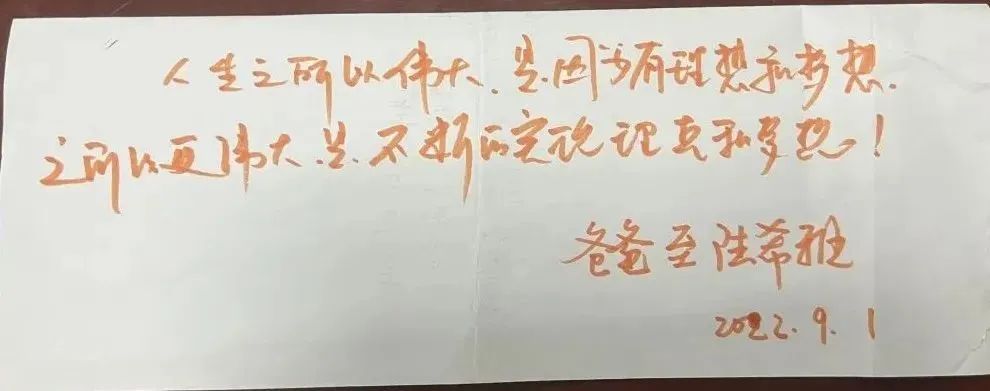 人生之所以伟大.是.因为有理想和梦想.
之所以更伟大.是.不断的实现理想和梦想!
爸爸至陆希雅
2022.9.1